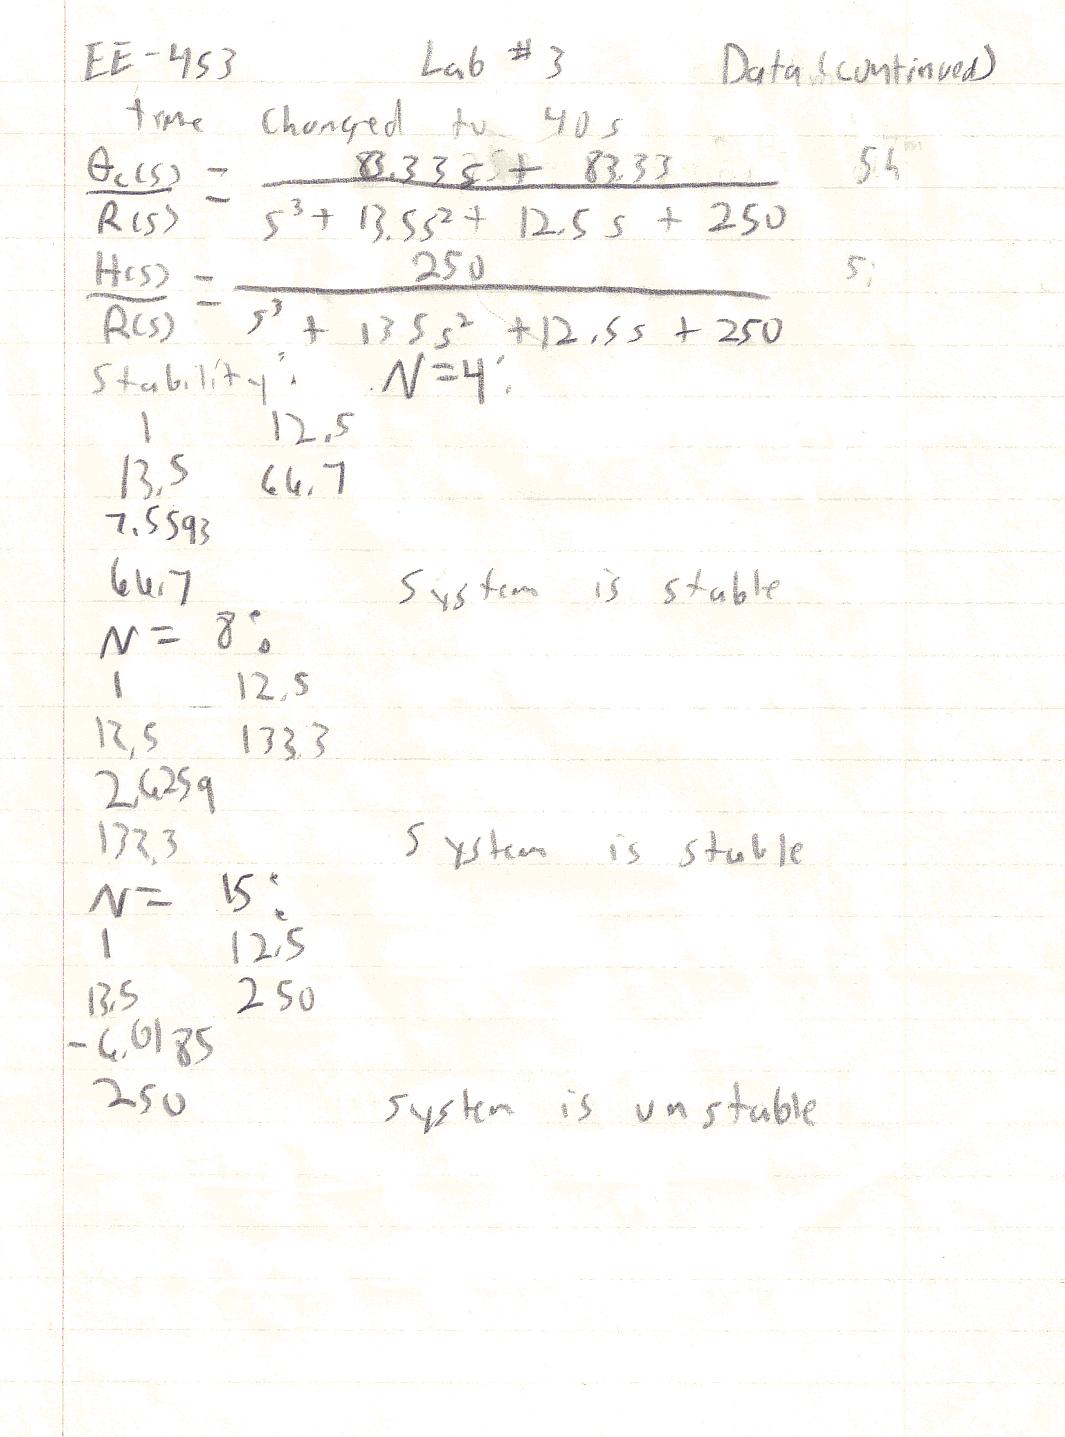 EE-453 Lab #3 Data (continued)
time changed to 40s
θc(s) = 83.33s + 83.33 5h
R(s) s³ + 13.5s² + 12.5s + 250
H(s) = 250 5i
R(s) s³ + 13.5s² + 12.5s + 250
Stability: N=4:
1 12.5
13.5 66.7
7.5593
66.7 System is stable
N = 8:
1 12.5
13.5 133.3
2.6259
133.3 System is stable
N = 15:
1 12.5
13.5 250
-6.0185
250 System is unstable